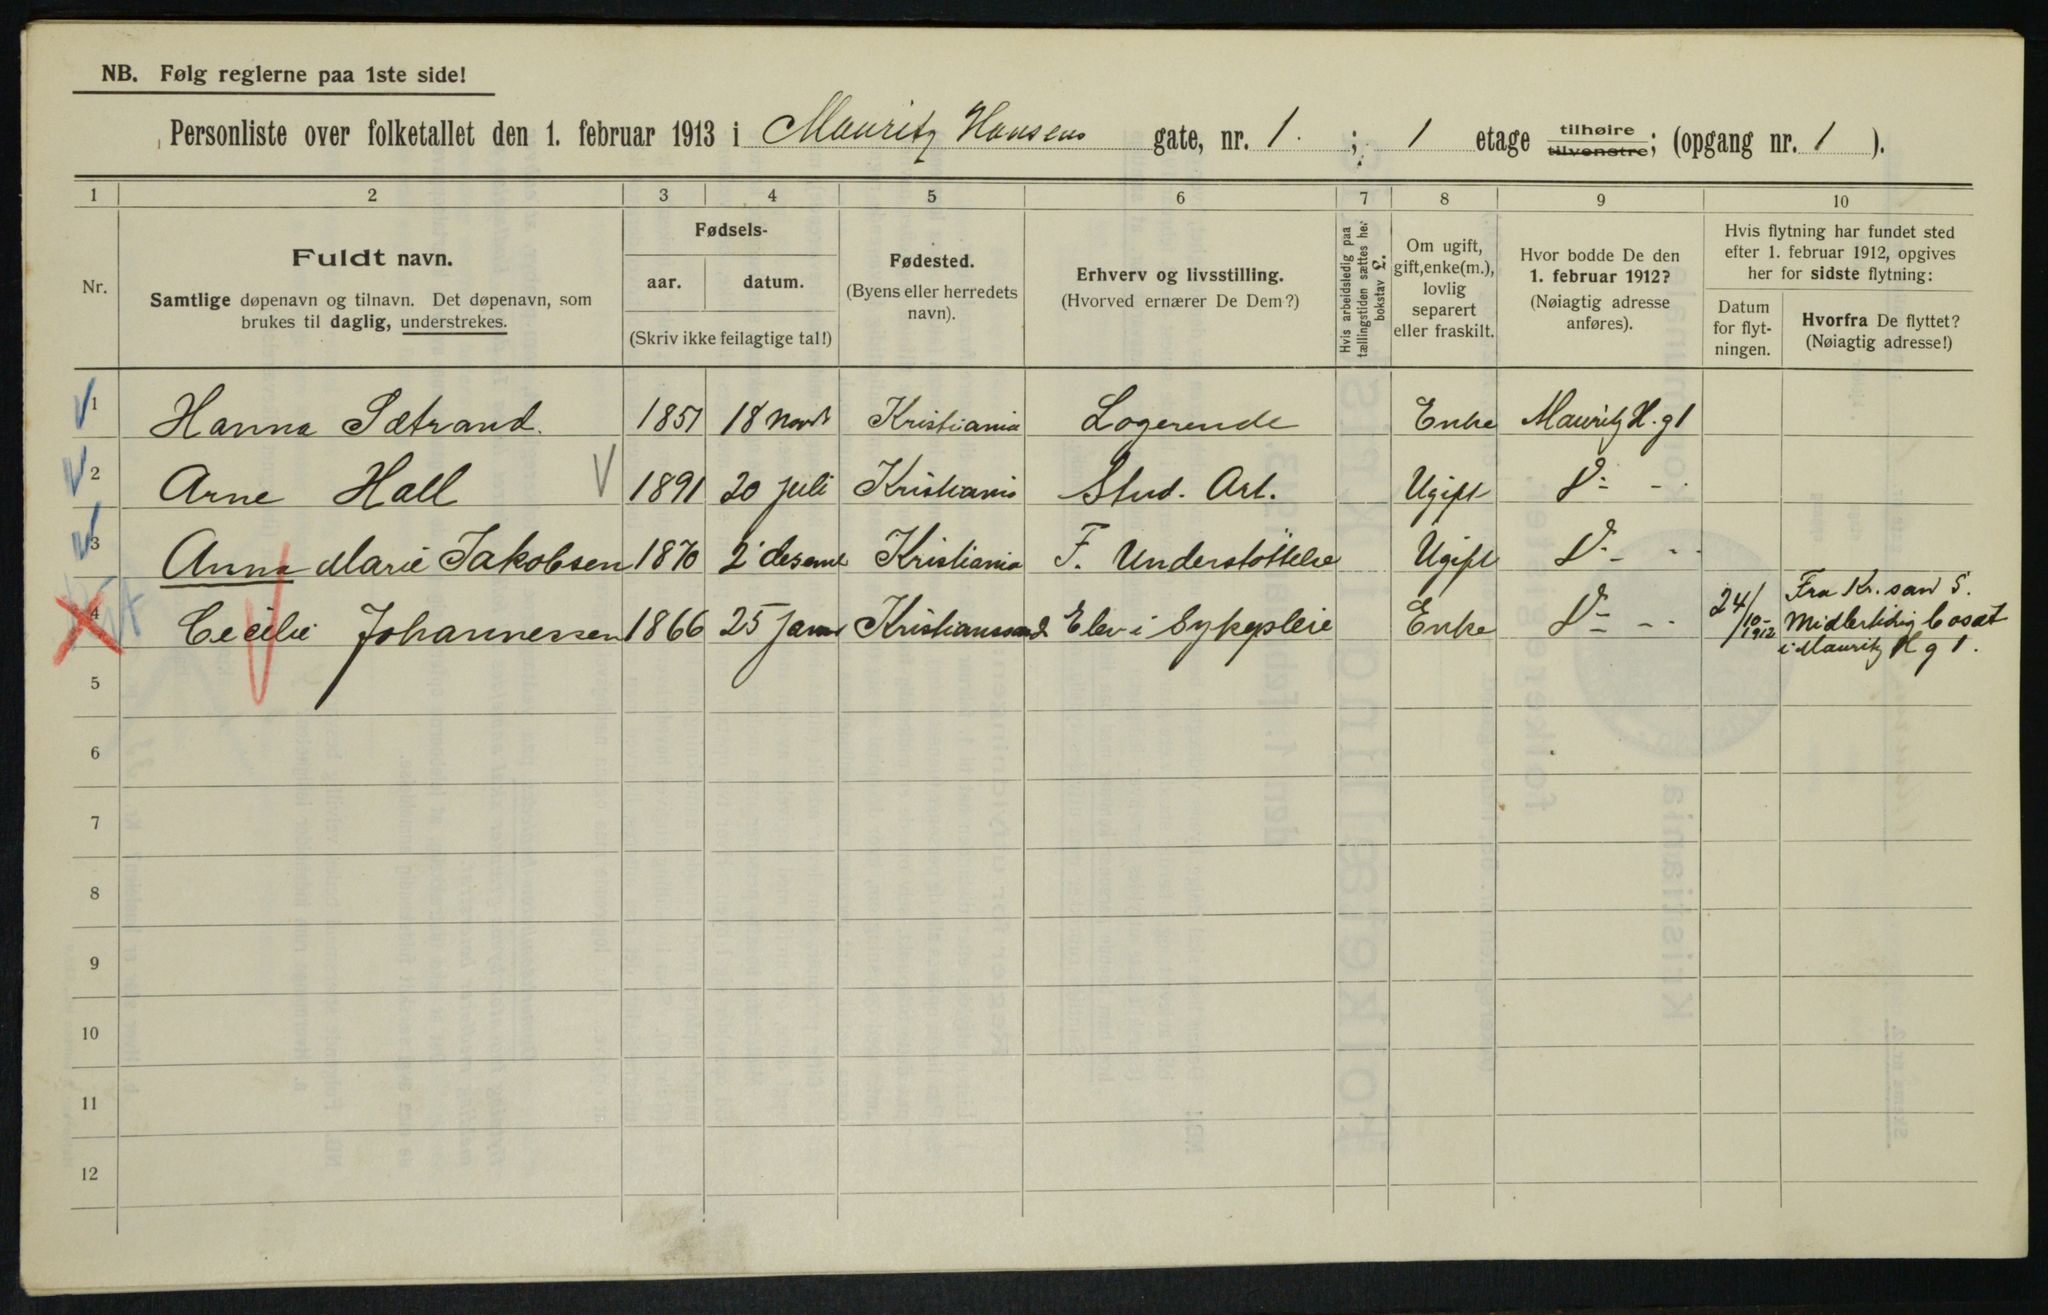 NB. Følg reglerne paa 1ste side!
Personliste over folketallet den 1. februar 1913 i Mauritz Hansens gate, nr. 1. ; 1 etage tilhøire tilvenstre; (opgang nr. 1 ).
1 2 3 4 5 6 7 8 9 10
Nr.
Fuldt navn.
Samtlige døpenavn og tilnavn. Det døpenavn, som
brukes til daglig, understrekes.
Fødsels-
aar. datum.
(Skriv ikke feilagtige tal!)
Fødested.
(Byens eller herredets
navn).
Erhverv og livsstilling.
(Hvorved ernærer De Dem?)
Hvis arbeidsledig paa
tællingstiden sættes her
bokstav L.
Om ugift,
gift, enke(m.),
lovlig
separert
eller fraskilt.
Hvor bodde De den
1. februar 1912?
(Nøiagtig adresse
anføres).
Hvis flytning har fundet sted
efter 1. februar 1912, opgives
her for sidste flytning:
Datum
for flyt-
ningen.
Hvorfra De flyttet?
(Nøiagtig adresse!)
1 Hanna Sætrand. 1851 18 Novb Kristiania Logerende Enke Mauritz H. g 1
2 Arne Hall 1891 20 juli Kristiania Stud. Art. Ugift D- -
3 Anna Marie Jakobsen 1870 2 desemb Kristiania F. Understøttelse Ugift D- -
4 Cecilie Johannessen 1866 25 Janu Kristianssand Elev i Sykepleie Enke D- - 24/10-1912 Fra Kr. sand S.
Midlertidig bosat
i Mauritz H g 1.
5
6
7
8
9
10
11
12